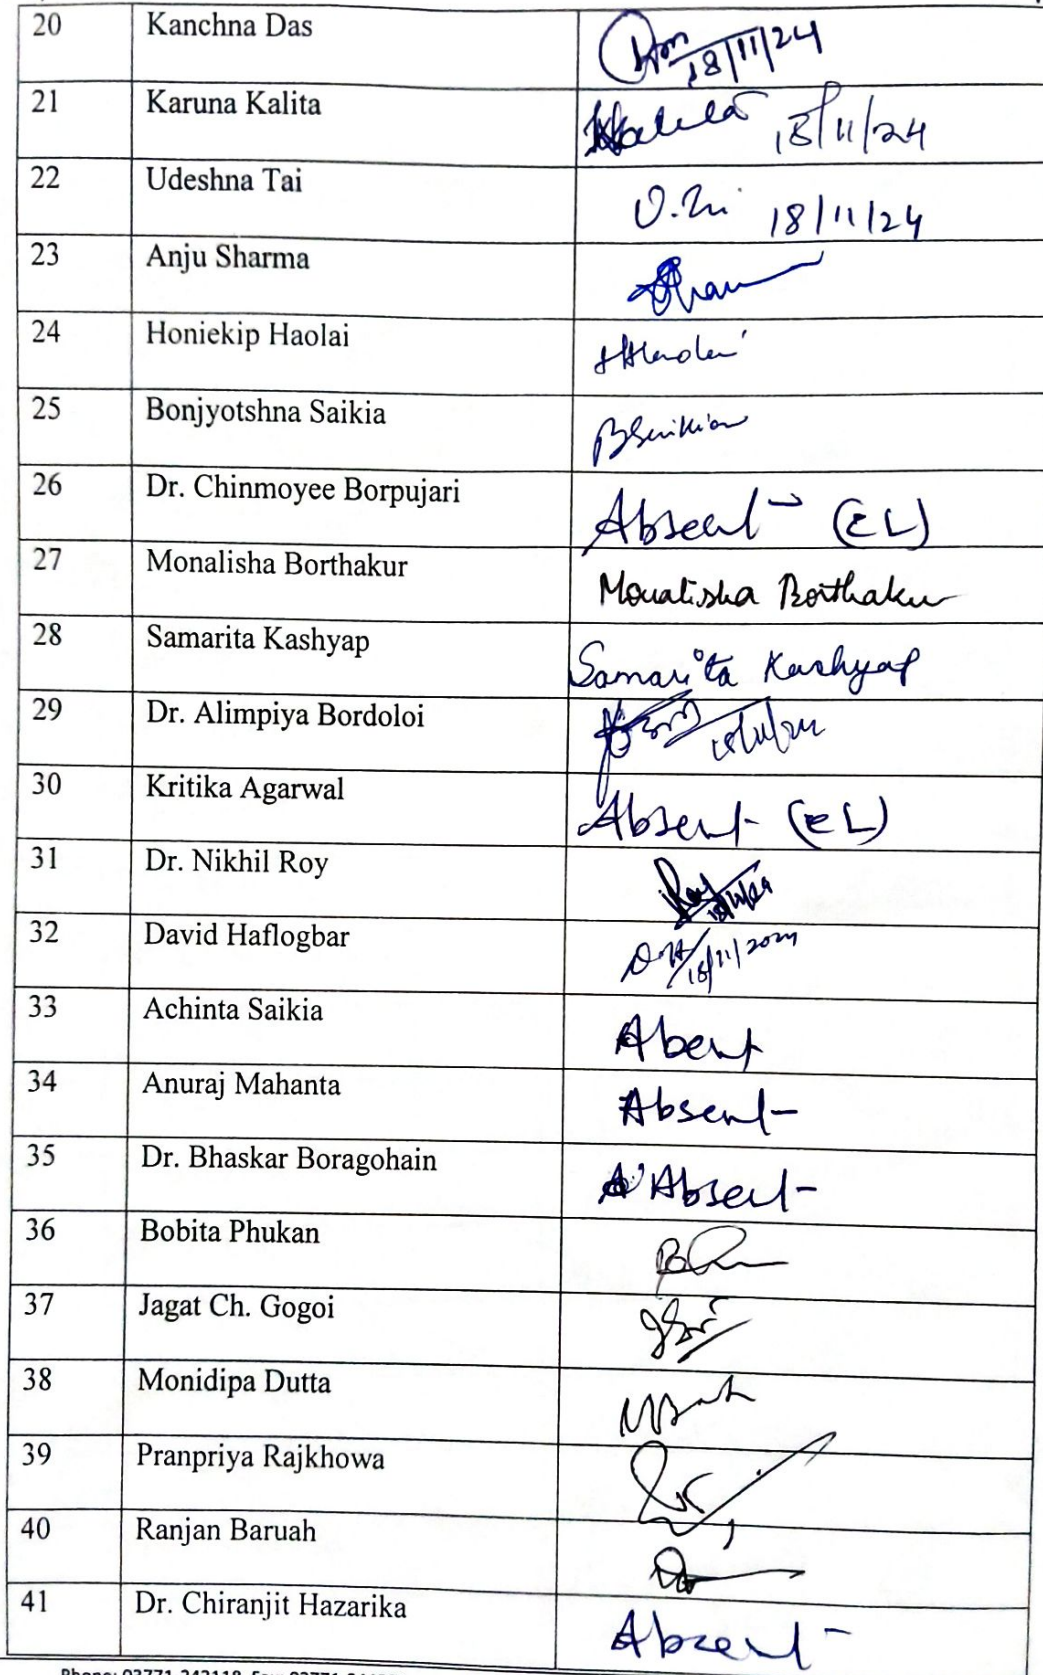 20 Kanchna Das 18/11/24
21 Karuna Kalita Kalita 18/11/24
22 Udeshna Tai 18/11/24
23 Anju Sharma
24 Honiekip Haolai
25 Bonjyotshna Saikia BSaikia
26 Dr. Chinmoyee Borpujari Absent (EL)
27 Monalisha Borthakur Monalisha Borthakur
28 Samarita Kashyap Samarita Kashyap
29 Dr. Alimpiya Bordoloi 18/11/24
30 Kritika Agarwal Absent (EL)
31 Dr. Nikhil Roy Roy 18/11/24
32 David Haflogbar 18/11/2024
33 Achinta Saikia Abent
34 Anuraj Mahanta Absent
35 Dr. Bhaskar Boragohain Absent
36 Bobita Phukan
37 Jagat Ch. Gogoi
38 Monidipa Dutta
39 Pranpriya Rajkhowa
40 Ranjan Baruah
41 Dr. Chiranjit Hazarika Absent